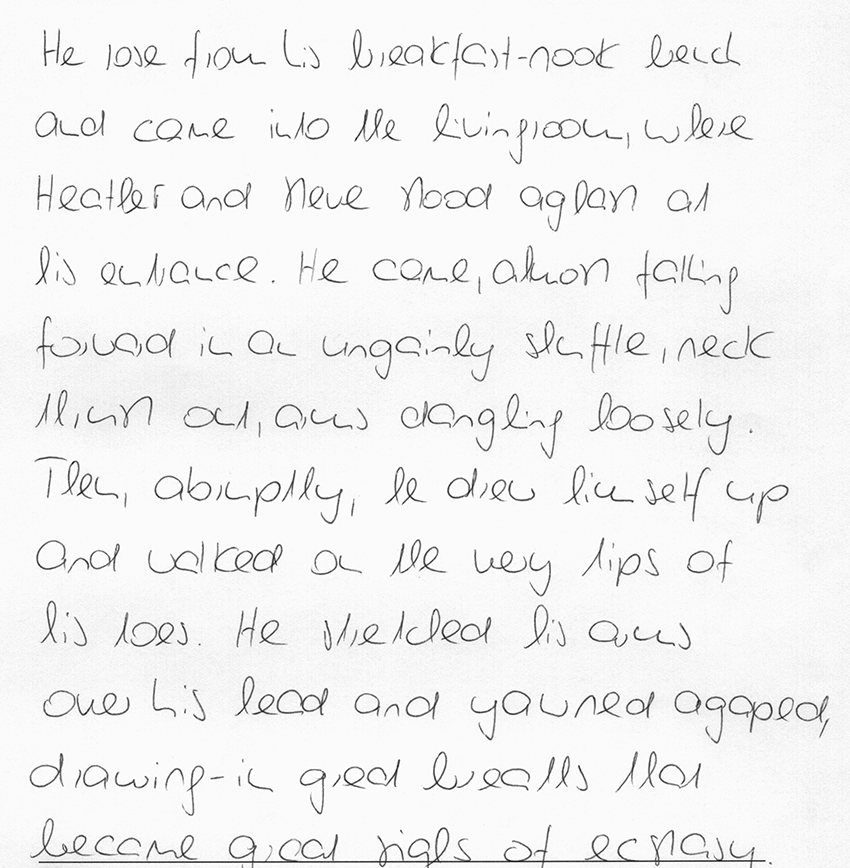 He rose from his breakfast-nook bench
and came into the livingroom, where
Heather and Steve stood aghast at
his entrance. He came, almost falling
forward in an ungainly shuffle, neck
thrust out, arms dangling loosely.
Then, abruptly, he drew himself up
and walked on the very tips of
his toes. He stretched his arms
over his head and yawned agaped,
drawing-in great breaths that
became great sighs of ecstasy.